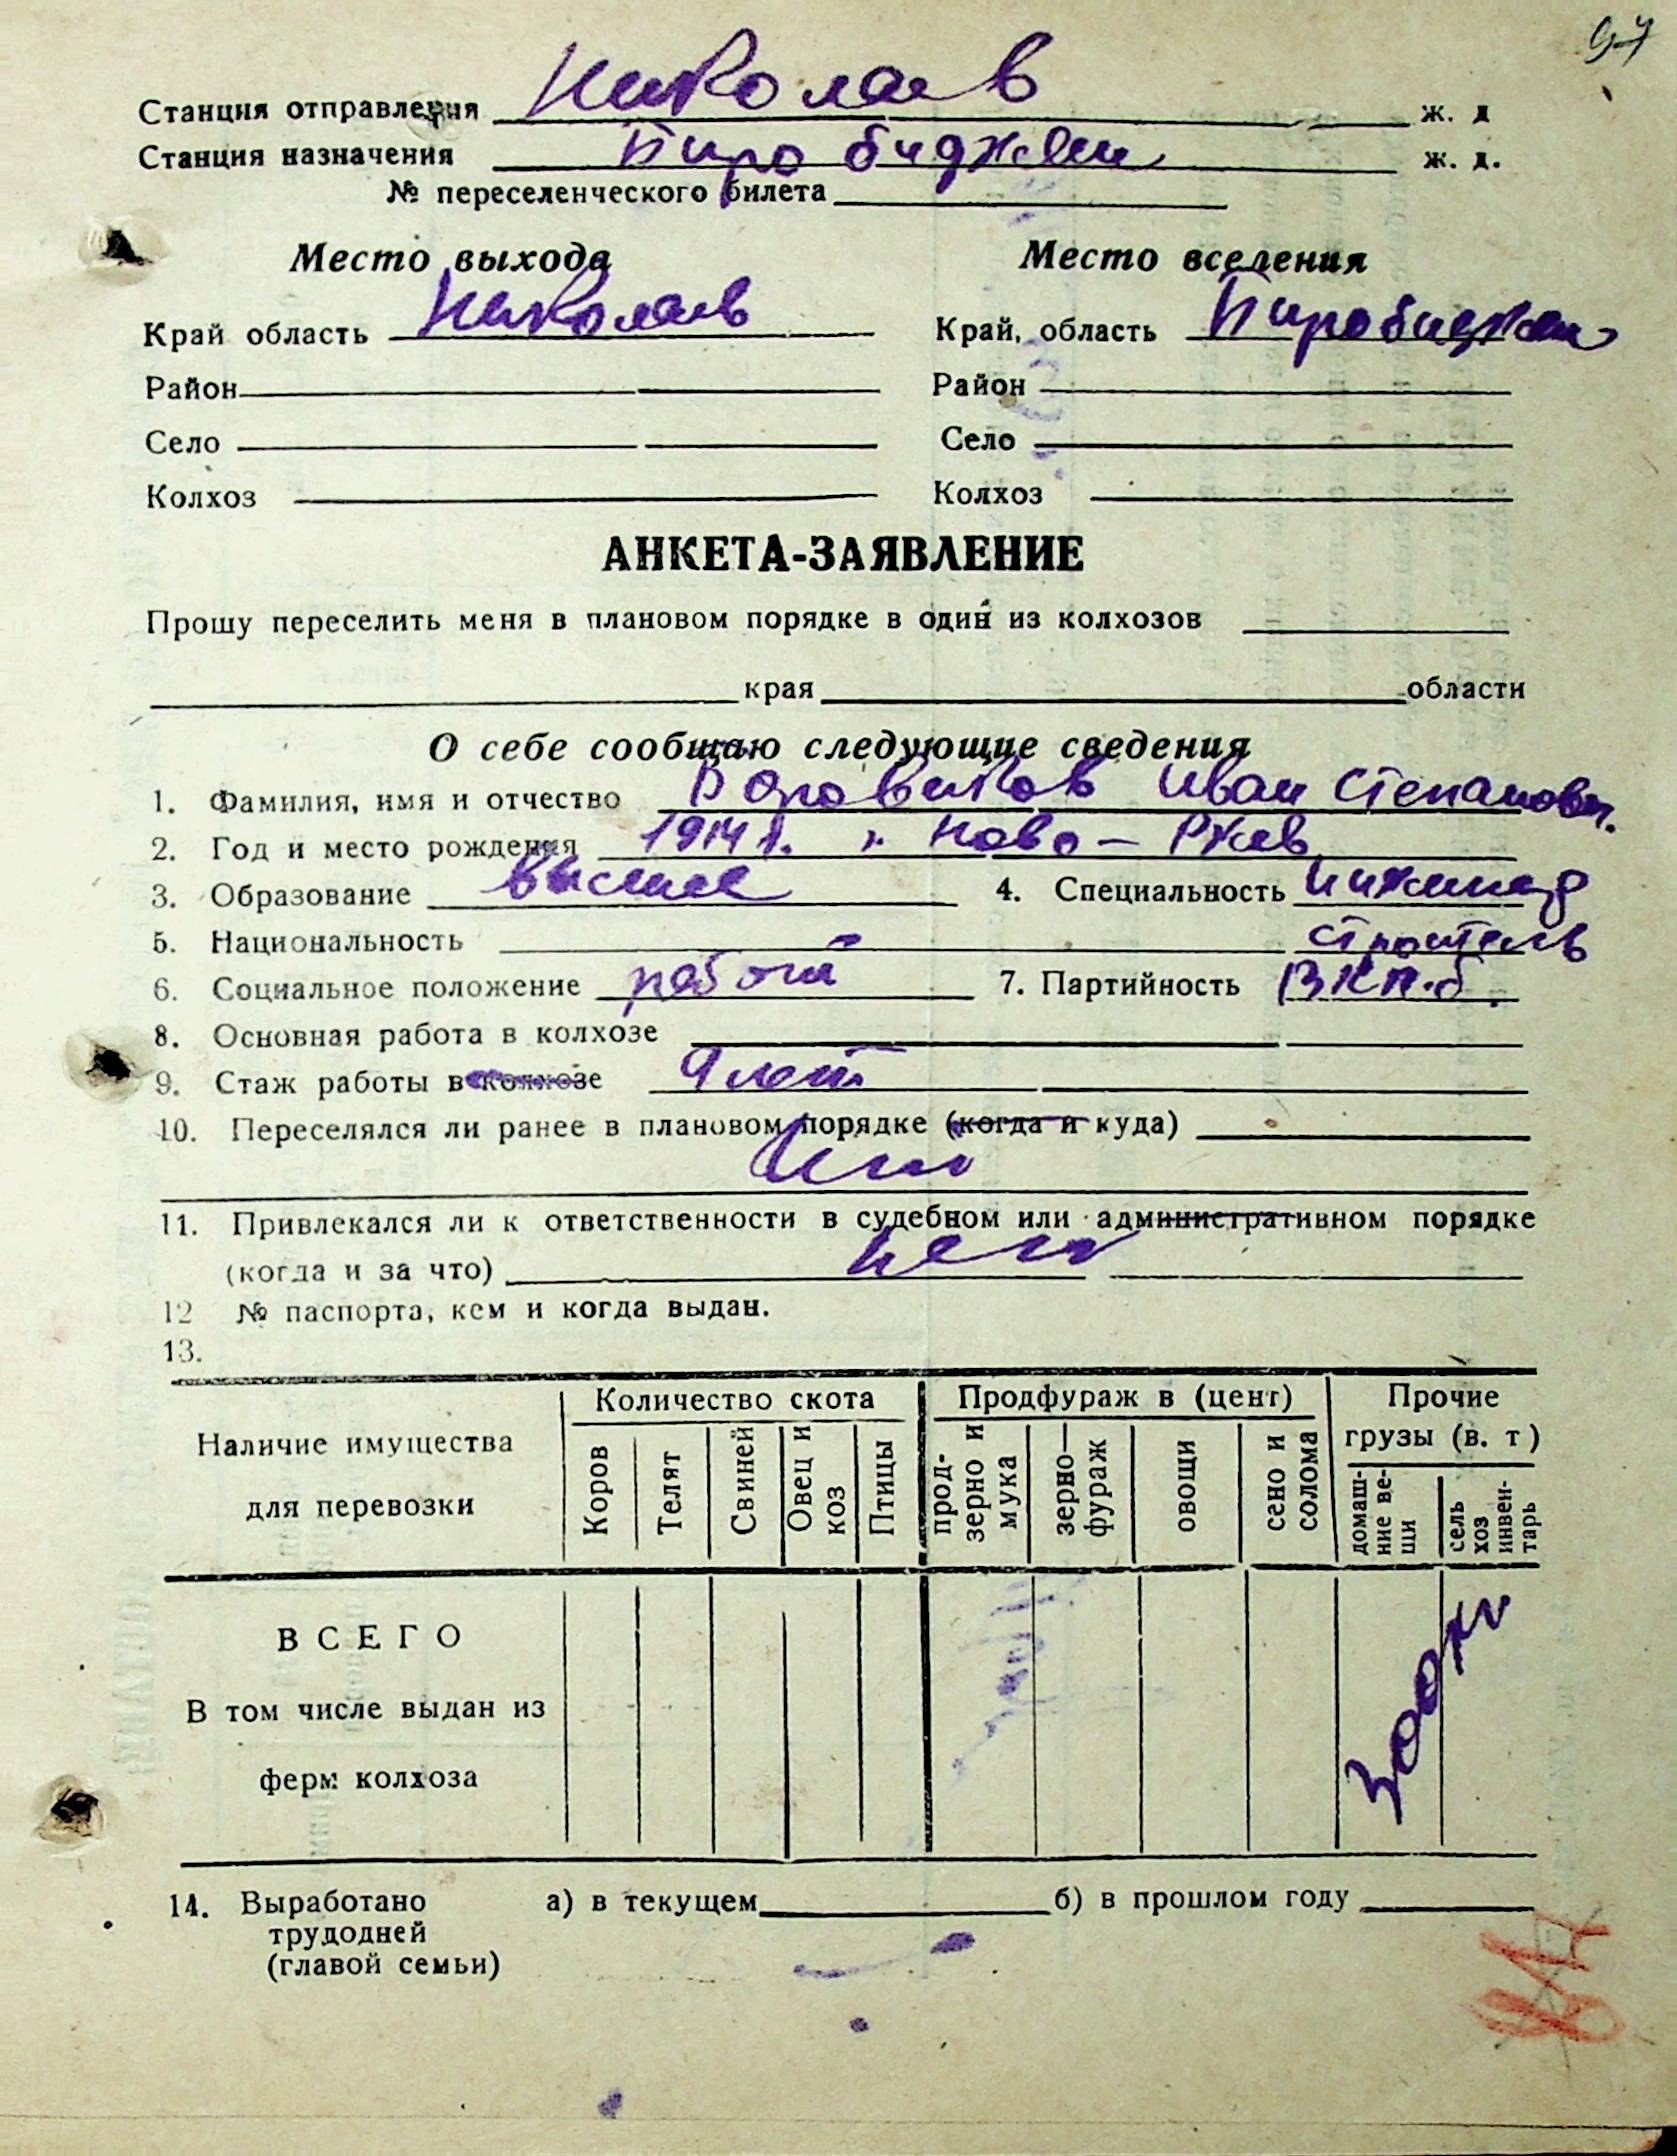 97
Станция отправления Николаев ж. д
Станция назначения Биробиджан ж. д.
№ переселенческого билета
Место выхода Место вселения
Край область Николаев Край, область Биробиджан
Район Район
Село Село
Колхоз Колхоз
АНКЕТА-ЗАЯВЛЕНИЕ
Прошу переселить меня в плановом порядке в один из колхозов
края области
О себе сообщаю следующие сведения
1. Фамилия, имя и отчество Боровиков Иван Степанович.
2. Год и место рождения 1914 г. г. Ново-Ржев
3. Образование высшее 4. Специальность инженер
5. Национальность строитель
6. Социальное положение рабочий 7. Партийность ВКП.б.
8. Основная работа в колхозе
9. Стаж работы в колхозе 9 лет
10. Переселялся ли ранее в плановом порядке (когда и куда)
Нет
11. Привлекался ли к ответственности в судебном или административном порядке
(когда и за что) нет
12 № паспорта, кем и когда выдан.
13.
Наличие имущества для перевозки Количество скота Продфураж в (цент) Прочие грузы (в. т)
Коров Телят Свиней Овец и коз Птицы прод-зерно и мука зерно-фураж овощи сено и солома домаш-ние ве-щи сель хоз инвен-тарь
ВСЕГО
В том числе выдан из
ферм колхоза
300 кг
14. Выработано а) в текущем б) в прошлом году
трудодней
(главой семьи)